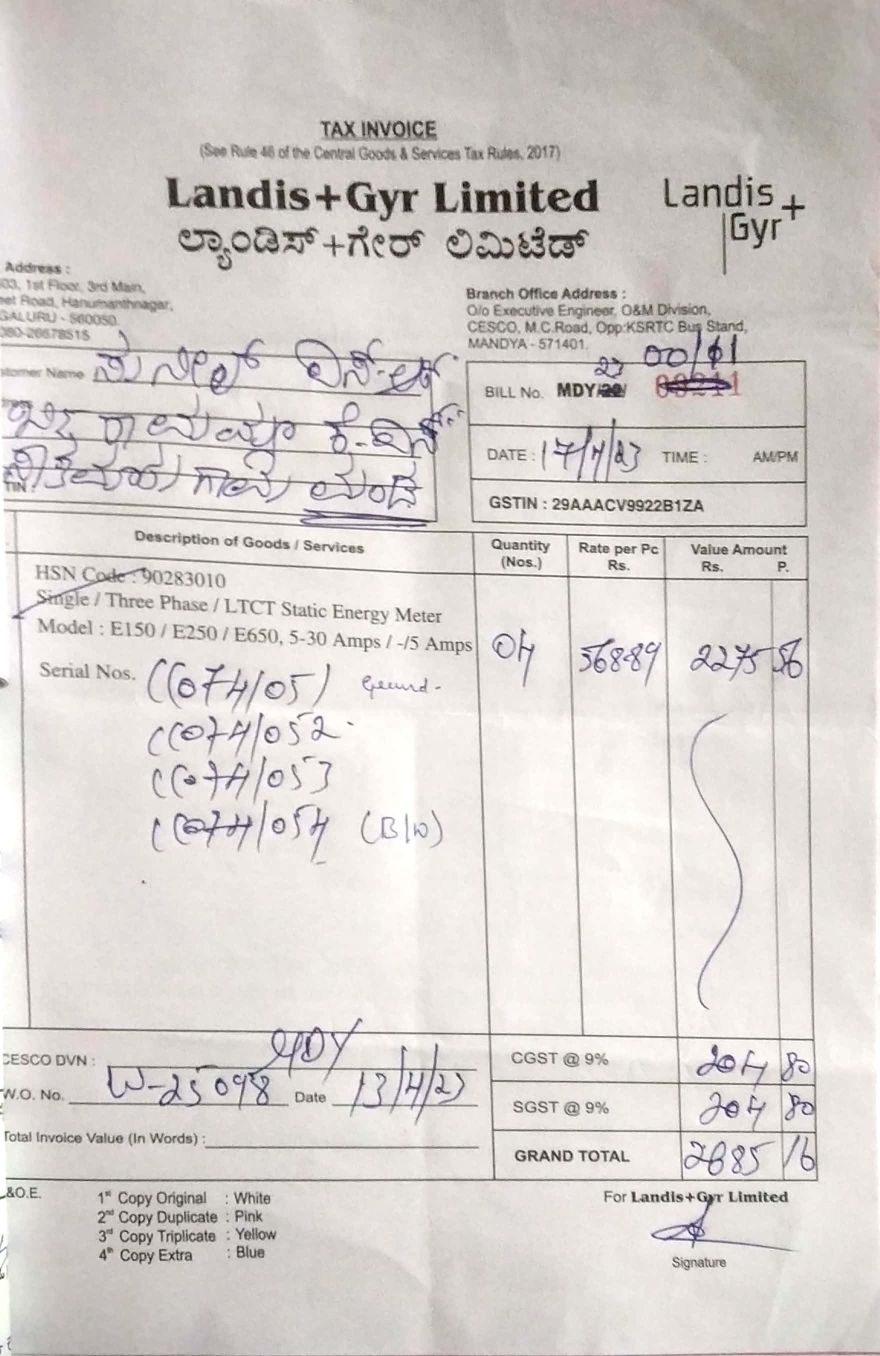 TAX INVOICE
(See Rule 46 of the Central Goods & Services Tax Rules, 2017)
Landis+Gyr Limited
ಲ್ಯಾಂಡಿಸ್+ಗೇರ್ ಲಿಮಿಟೆಡ್
Landis+
Gyr
Address :
03, 1st Floor, 3rd Main,
eet Road, Hanumanthnagar,
GALURU - 560050.
080-26678515
Branch Office Address :
O/o Executive Engineer, O&M Division,
CESCO, M.C.Road, Opp:KSRTC Bus Stand,
MANDYA - 571401.
stomer Name
TIN :
23 00/61
BILL No. MDY/20/
DATE : 17/4/23 TIME : AM/PM
GSTIN : 29AAACV9922B1ZA
Description of Goods / Services Quantity (Nos.) Rate per Pc Rs. Value Amount Rs. P.
HSN Code : 90283010
Single / Three Phase / LTCT Static Energy Meter
Model : E150 / E250 / E650, 5-30 Amps / -/5 Amps 04 568-89 2275 56
Serial Nos. CC074105)
CC0741052
CC0741053
CC0741054 (B/W)
CESCO DVN : MDY
W.O. No. W-25098 Date 13/4/23
Total Invoice Value (In Words) :
CGST @ 9% 204 80
SGST @ 9% 204 80
GRAND TOTAL 2685 16
&O.E.
1st Copy Original : White
2nd Copy Duplicate : Pink
3rd Copy Triplicate : Yellow
4th Copy Extra : Blue
For Landis+Gyr Limited
Signature